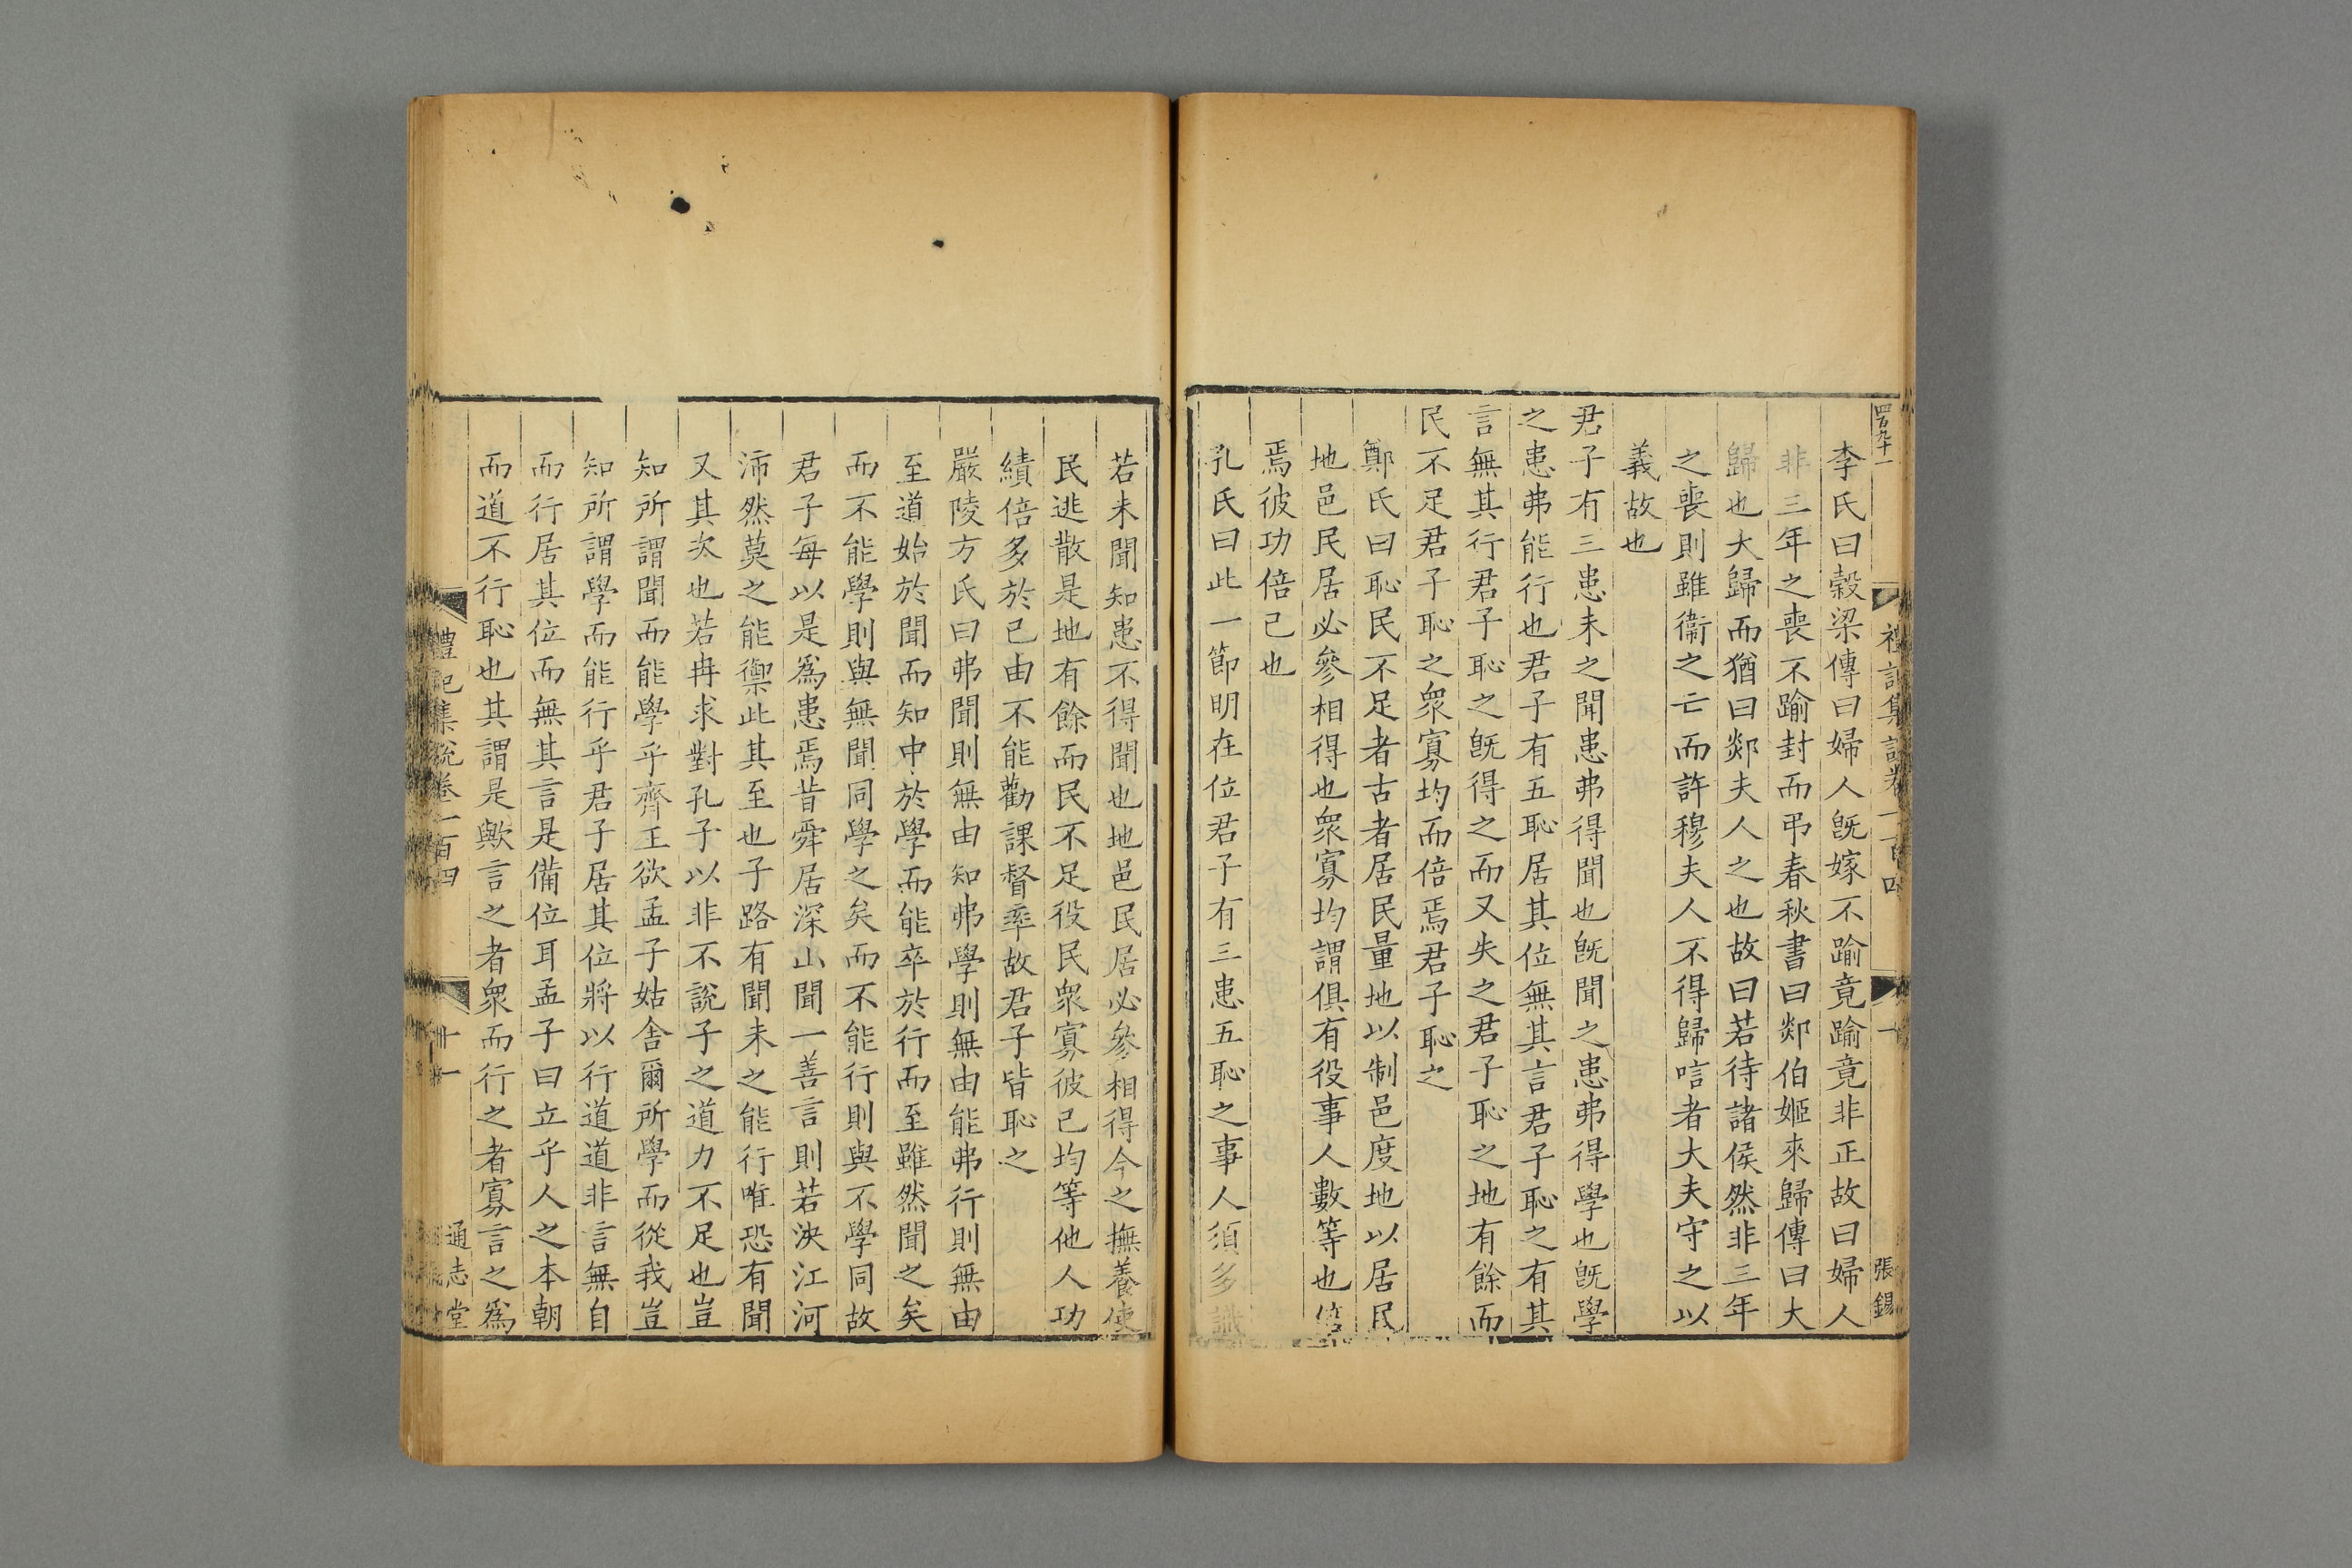 四百九十一
禮記集說卷一百四
張錫
李氏曰穀梁傳曰婦人旣嫁不踰竟踰竟非正故曰婦人
非三年之喪不踰封而弔春秋書曰郯伯姬來歸傳曰大
歸也大歸而猶曰郯夫人之也故曰若待諸侯然非三年
之喪則雖衞之亡而許穆夫人不得歸唁者大夫守之以
義故也
君子有三患未之聞患弗得聞也旣聞之患弗得學也旣學
之患弗能行也君子有五恥居其位無其言君子恥之有其
言無其行君子恥之旣得之而又失之君子恥之地有餘而
民不足君子恥之衆寡均而倍焉君子恥之
鄭氏曰恥民不足者古者居民量地以制邑度地以居民
地邑民居必參相得也衆寡均謂俱有役事人數等也倍
焉彼功倍己也
孔氏曰此一節明在位君子有三患五恥之事人須多識
若未聞知患不得聞也地邑民居必參相得今之撫養使
民逃散是地有餘而民不足役民衆寡彼己均等他人功
績倍多於己由不能勸課督率故君子皆恥之
嚴陵方氏曰弗聞則無由知弗學則無由能弗行則無由
至道始於聞而知中於學而能卒於行而至雖然聞之矣
而不能學則與無聞同學之矣而不能行則與不學同故
君子每以是爲患焉昔舜居深山聞一善言則若決江河
沛然莫之能禦此其至也子路有聞未之能行唯恐有聞
又其次也若冉求對孔子以非不說子之道力不足也豈
知所謂聞而能學乎齊王欲孟子姑舍爾所學而從我豈
知所謂學而能行乎君子居其位將以行道道非言無自
而行居其位而無其言是備位耳孟子曰立乎人之本朝
而道不行恥也其謂是歟言之者衆而行之者寡言之爲
禮記集說卷一百四
十一
通志堂